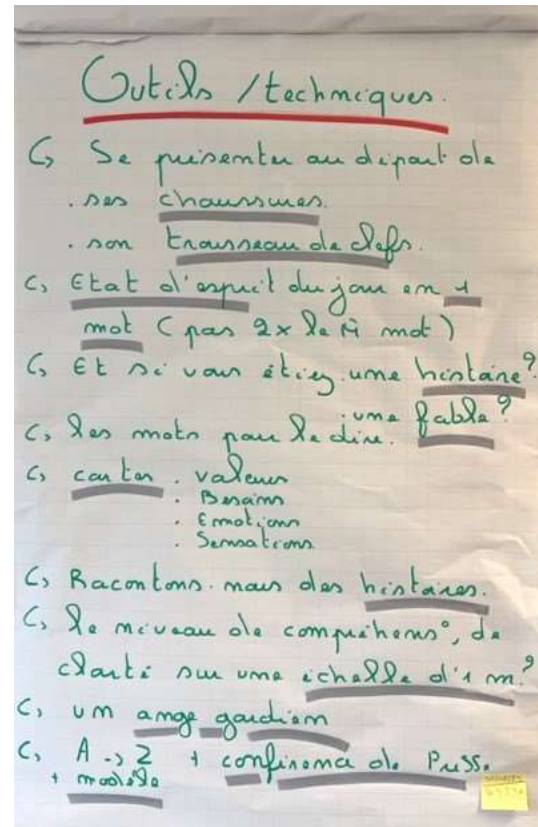 Outils / techniques.
↳ Se présenter au départ de
. ses chaussures.
. son trousseau de clefs.
↳ Etat d'esprit du jour en 1
mot (pas 2x le m̂ mot)
↳ Et si vous étiez une histoire?
. une fable?
↳ les mots pour le dire.
↳ cartes . valeurs
. Besoins
. Emotions
. Sensations
↳ Racontons-nous des histoires.
↳ le niveau de compréhens°, de
clarté sur une échelle d'1 m?
↳ un ange gardien
↳ A -> Z + confinence de Presse
+ modèle